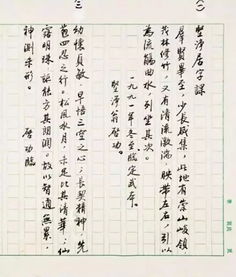 (一)
堅淨居字課
羣賢畢至,少長咸集,此地有崇山峻領
茂林修竹,又有清流激湍,映帶左右,引以
為流觴曲水,列坐其次。
一九九一年冬至臨定武本。
堅淨翁啟功。
幼懷貞敏,早悟三空之心;長契精神,先
苞四忍之行。松風水月,未足比其清華;仙
露明珠,詎能方其朗潤。故以智通無累,
神測未形。
啟功臨